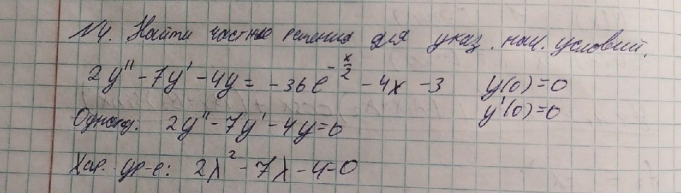 №4. Найти частное решение для указ. нач. условий.
2y'' - 7y' - 4y = -36e^{-x/2} - 4x - 3 y(0)=0
y'(0)=0
Однор. 2y'' - 7y' - 4y = 0
Хар. ур-е: 2λ² - 7λ - 4 = 0